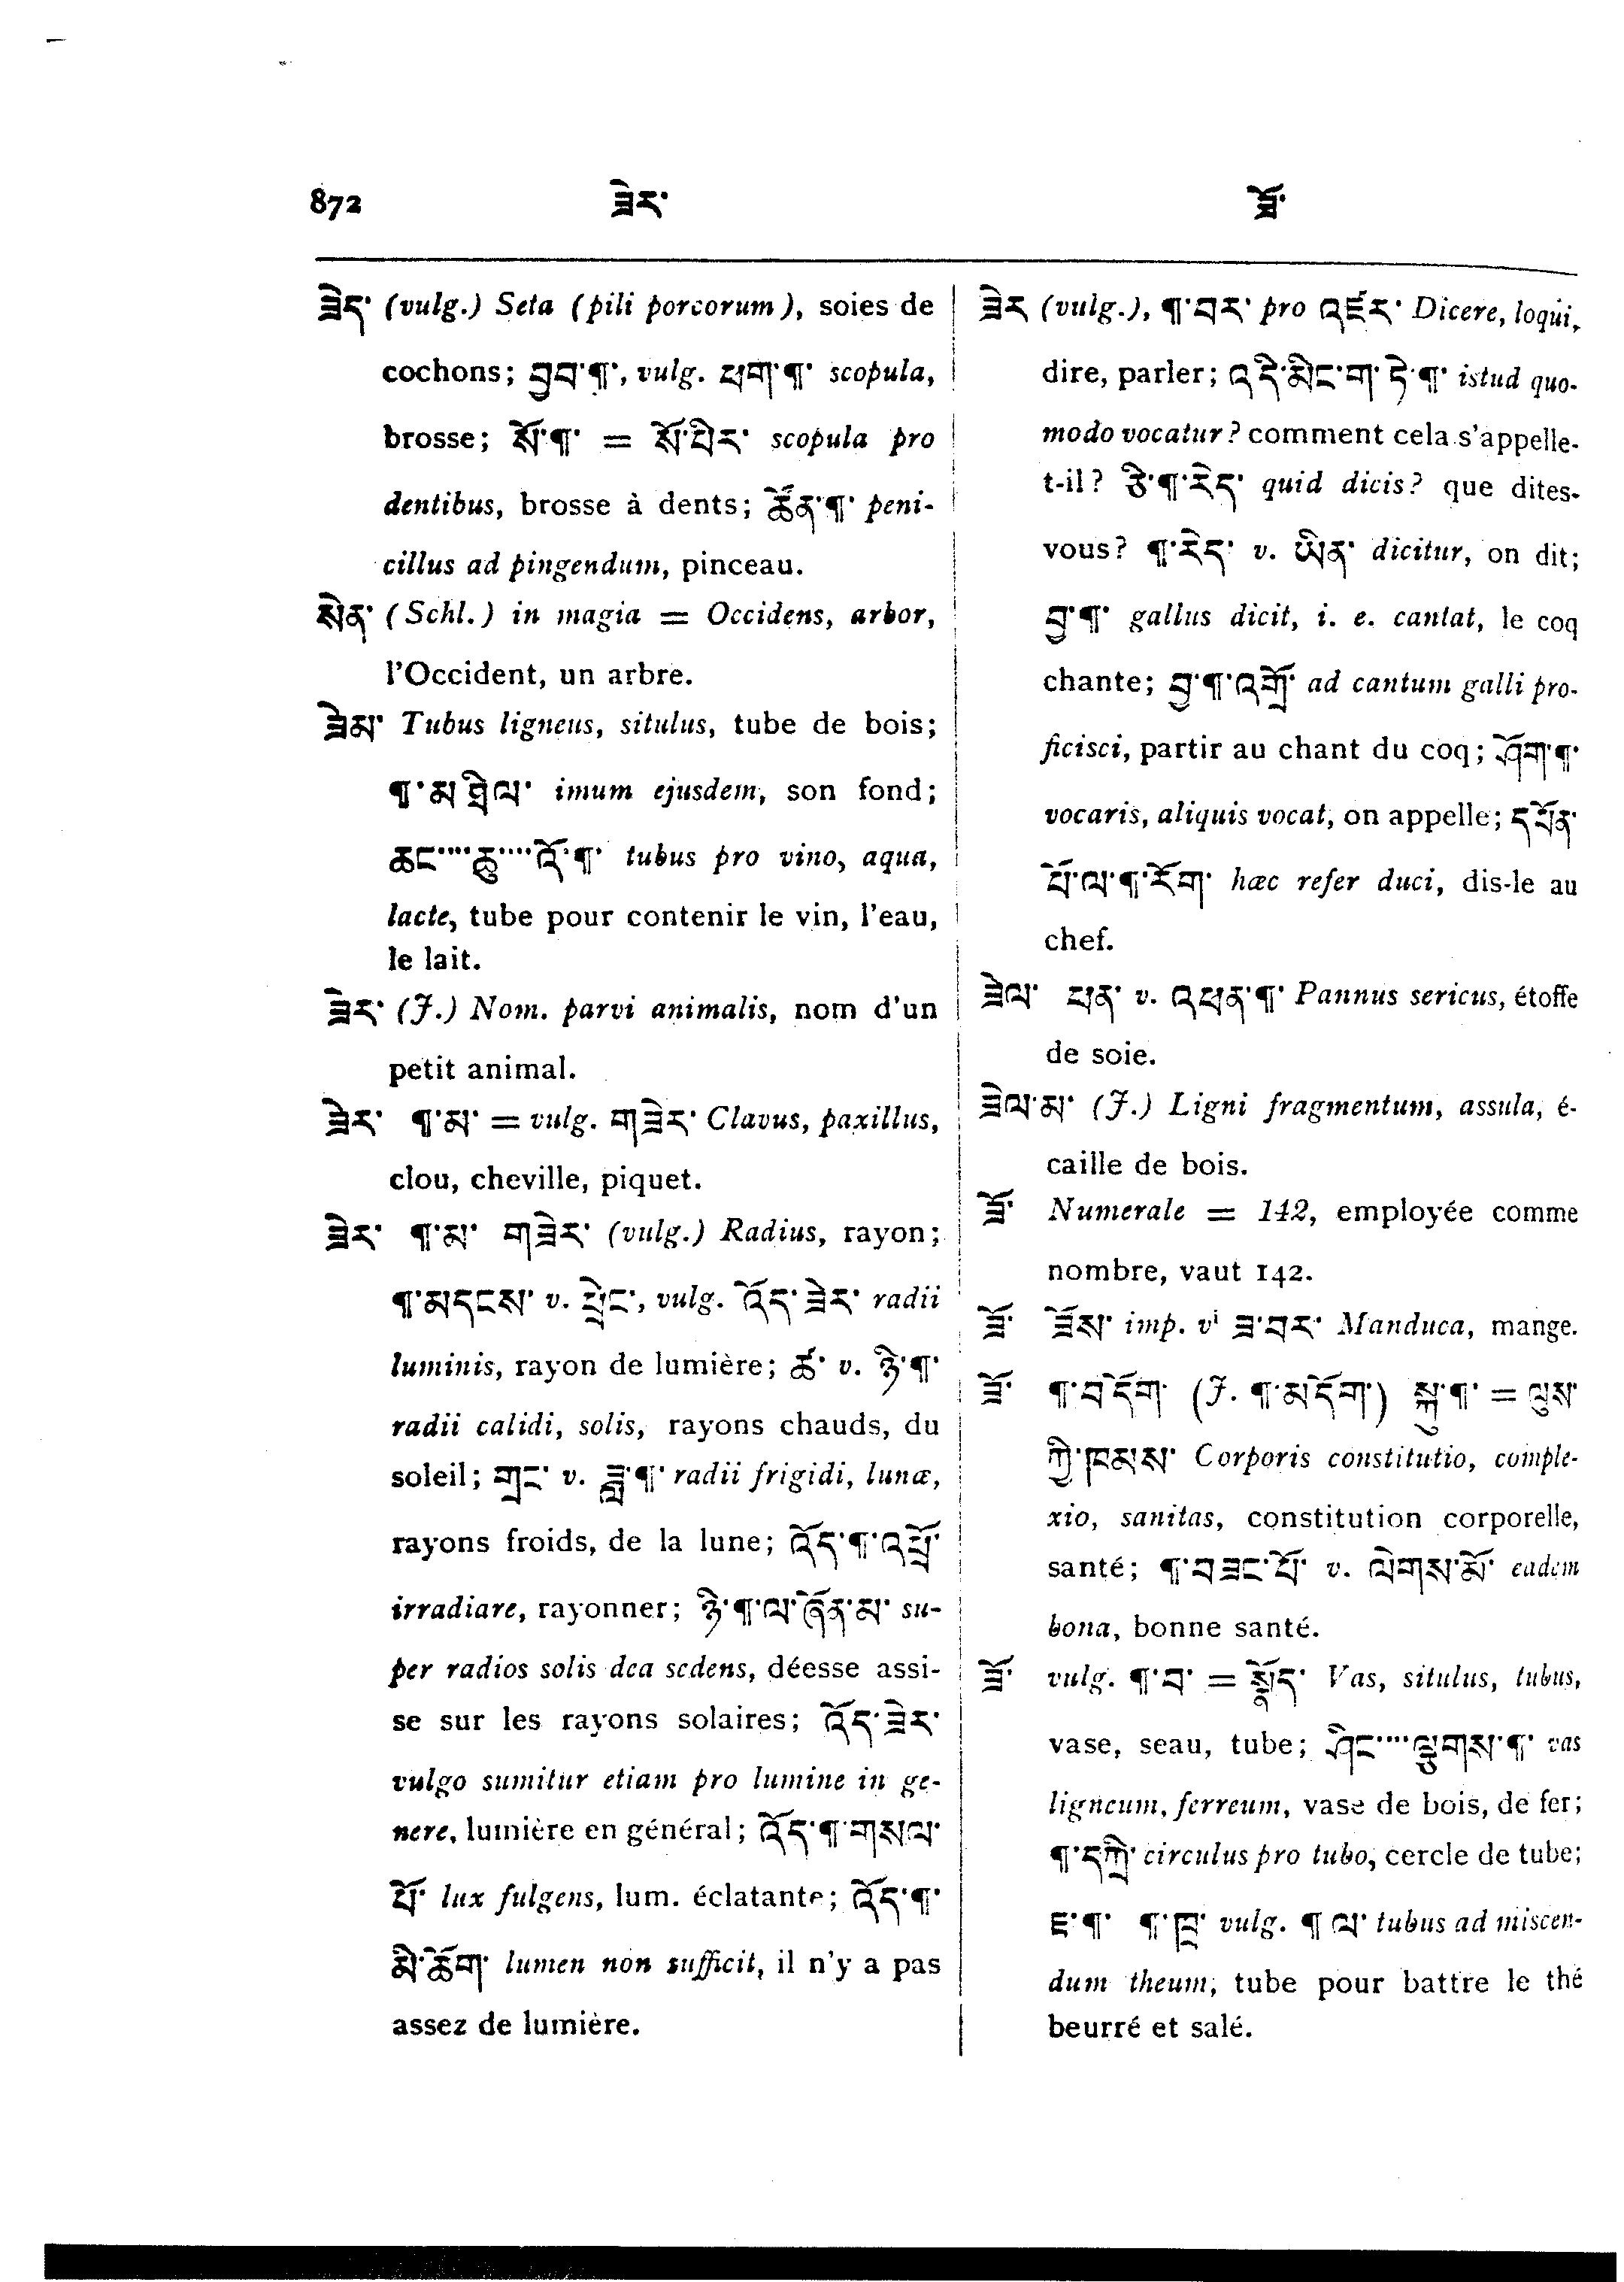 872 ཟེར་ ཟོ་
ཟེད་ (vulg.) Seta (pili porcorum), soies de
cochons; བྱབ་¶་, vulg. ཕག་¶་ scopula,
brosse; སོ་¶་ = སོ་པིར་ scopula pro
dentibus, brosse à dents; ཚོན་¶་ peni-
cillus ad pingendum, pinceau.
སེན་ (Schl.) in magia = Occidens, arbor,
l'Occident, un arbre.
ཟེམ་ Tubus ligneus, situlus, tube de bois;
¶་མཐིལ་ imum ejusdem, son fond;
ཆང་····ཆུ་····འོ་¶་ tubus pro vino, aqua,
lacte, tube pour contenir le vin, l'eau,
le lait.
ཟེར་ (J.) Nom. parvi animalis, nom d'un
petit animal.
ཟེར་ ¶་མ་ = vulg. གཟེར་ Clavus, paxillus,
clou, cheville, piquet.
ཟེར་ ¶་མ་ གཟེར་ (vulg.) Radius, rayon;
¶་མདངས་ v. ཕྲེང་, vulg. འོད་ཟེར་ radii
luminis, rayon de lumière; ཚ་ v. ཉི་¶་
radii calidi, solis, rayons chauds, du
soleil; གྲང་ v. ཟླ་¶་ radii frigidi, lunæ,
rayons froids, de la lune; འོད་¶་འཕྲོ་
irradiare, rayonner; ཉི་¶་ལ་ཞོན་མ་ su-
per radios solis dea sedens, déesse assi-
se sur les rayons solaires; འོད་ཟེར་
vulgo sumitur etiam pro lumine in ge-
nere, lumière en général; འོད་¶་གསལ་
པོ་ lux fulgens, lum. éclatante; འོད་¶་
མི་ཆོག་ lumen non sufficit, il n'y a pas
assez de lumière.
ཟེར (vulg.), ¶་བར་ pro འཛེར་ Dicere, loqui,
dire, parler; འདི་མིང་ག་ཏེ་¶་ istud quo-
modo vocatur? comment cela s'appelle-
t-il? ཅི་¶་རེད་ quid dicis? que dites-
vous? ¶་རེད་ v. ཡིན་ dicitur, on dit;
བྱ་¶་ gallus dicit, i. e. cantat, le coq
chante; བྱ་¶་འགྲོ་ ad cantum galli pro-
ficisci, partir au chant du coq; ཤོག་¶་
vocaris, aliquis vocat, on appelle; དཔོན་
པོ་ལ་¶་རོག་ hæc refer duci, dis-le au
chef.
ཟེལ་ ཕན་ v. འཕན་¶་ Pannus sericus, étoffe
de soie.
ཟེལ་མ་ (J.) Ligni fragmentum, assula, é-
caille de bois.
ཟོ་ Numerale = 142, employée comme
nombre, vaut 142.
ཟོ་ ཟོས་ imp. vⁱ ཟ་བར་ Manduca, mange.
ཟོ་ ¶་བདོག་ (J. ¶་མདོག་) སྐུ་¶་ = ལུས་
ཀྱི་ཁམས་ Corporis constitutio, comple-
xio, sanitas, constitution corporelle,
santé; ¶་བཟང་པོ་ v. ལེགས་མོ་ eadem
bona, bonne santé.
ཟོ་ vulg. ¶་བ་ = སྣོད་ Vas, situlus, tubus,
vase, seau, tube; ཤིང་····ལྕུགས་¶་ vas
ligneum, ferreum, vase de bois, de fer;
¶་དཀྲི་ circulus pro tubo, cercle de tube;
ཇ་¶་ ¶་ཁྲ་ vulg. ¶ ལ་ tubus ad miscen-
dum theum, tube pour battre le thé
beurré et salé.